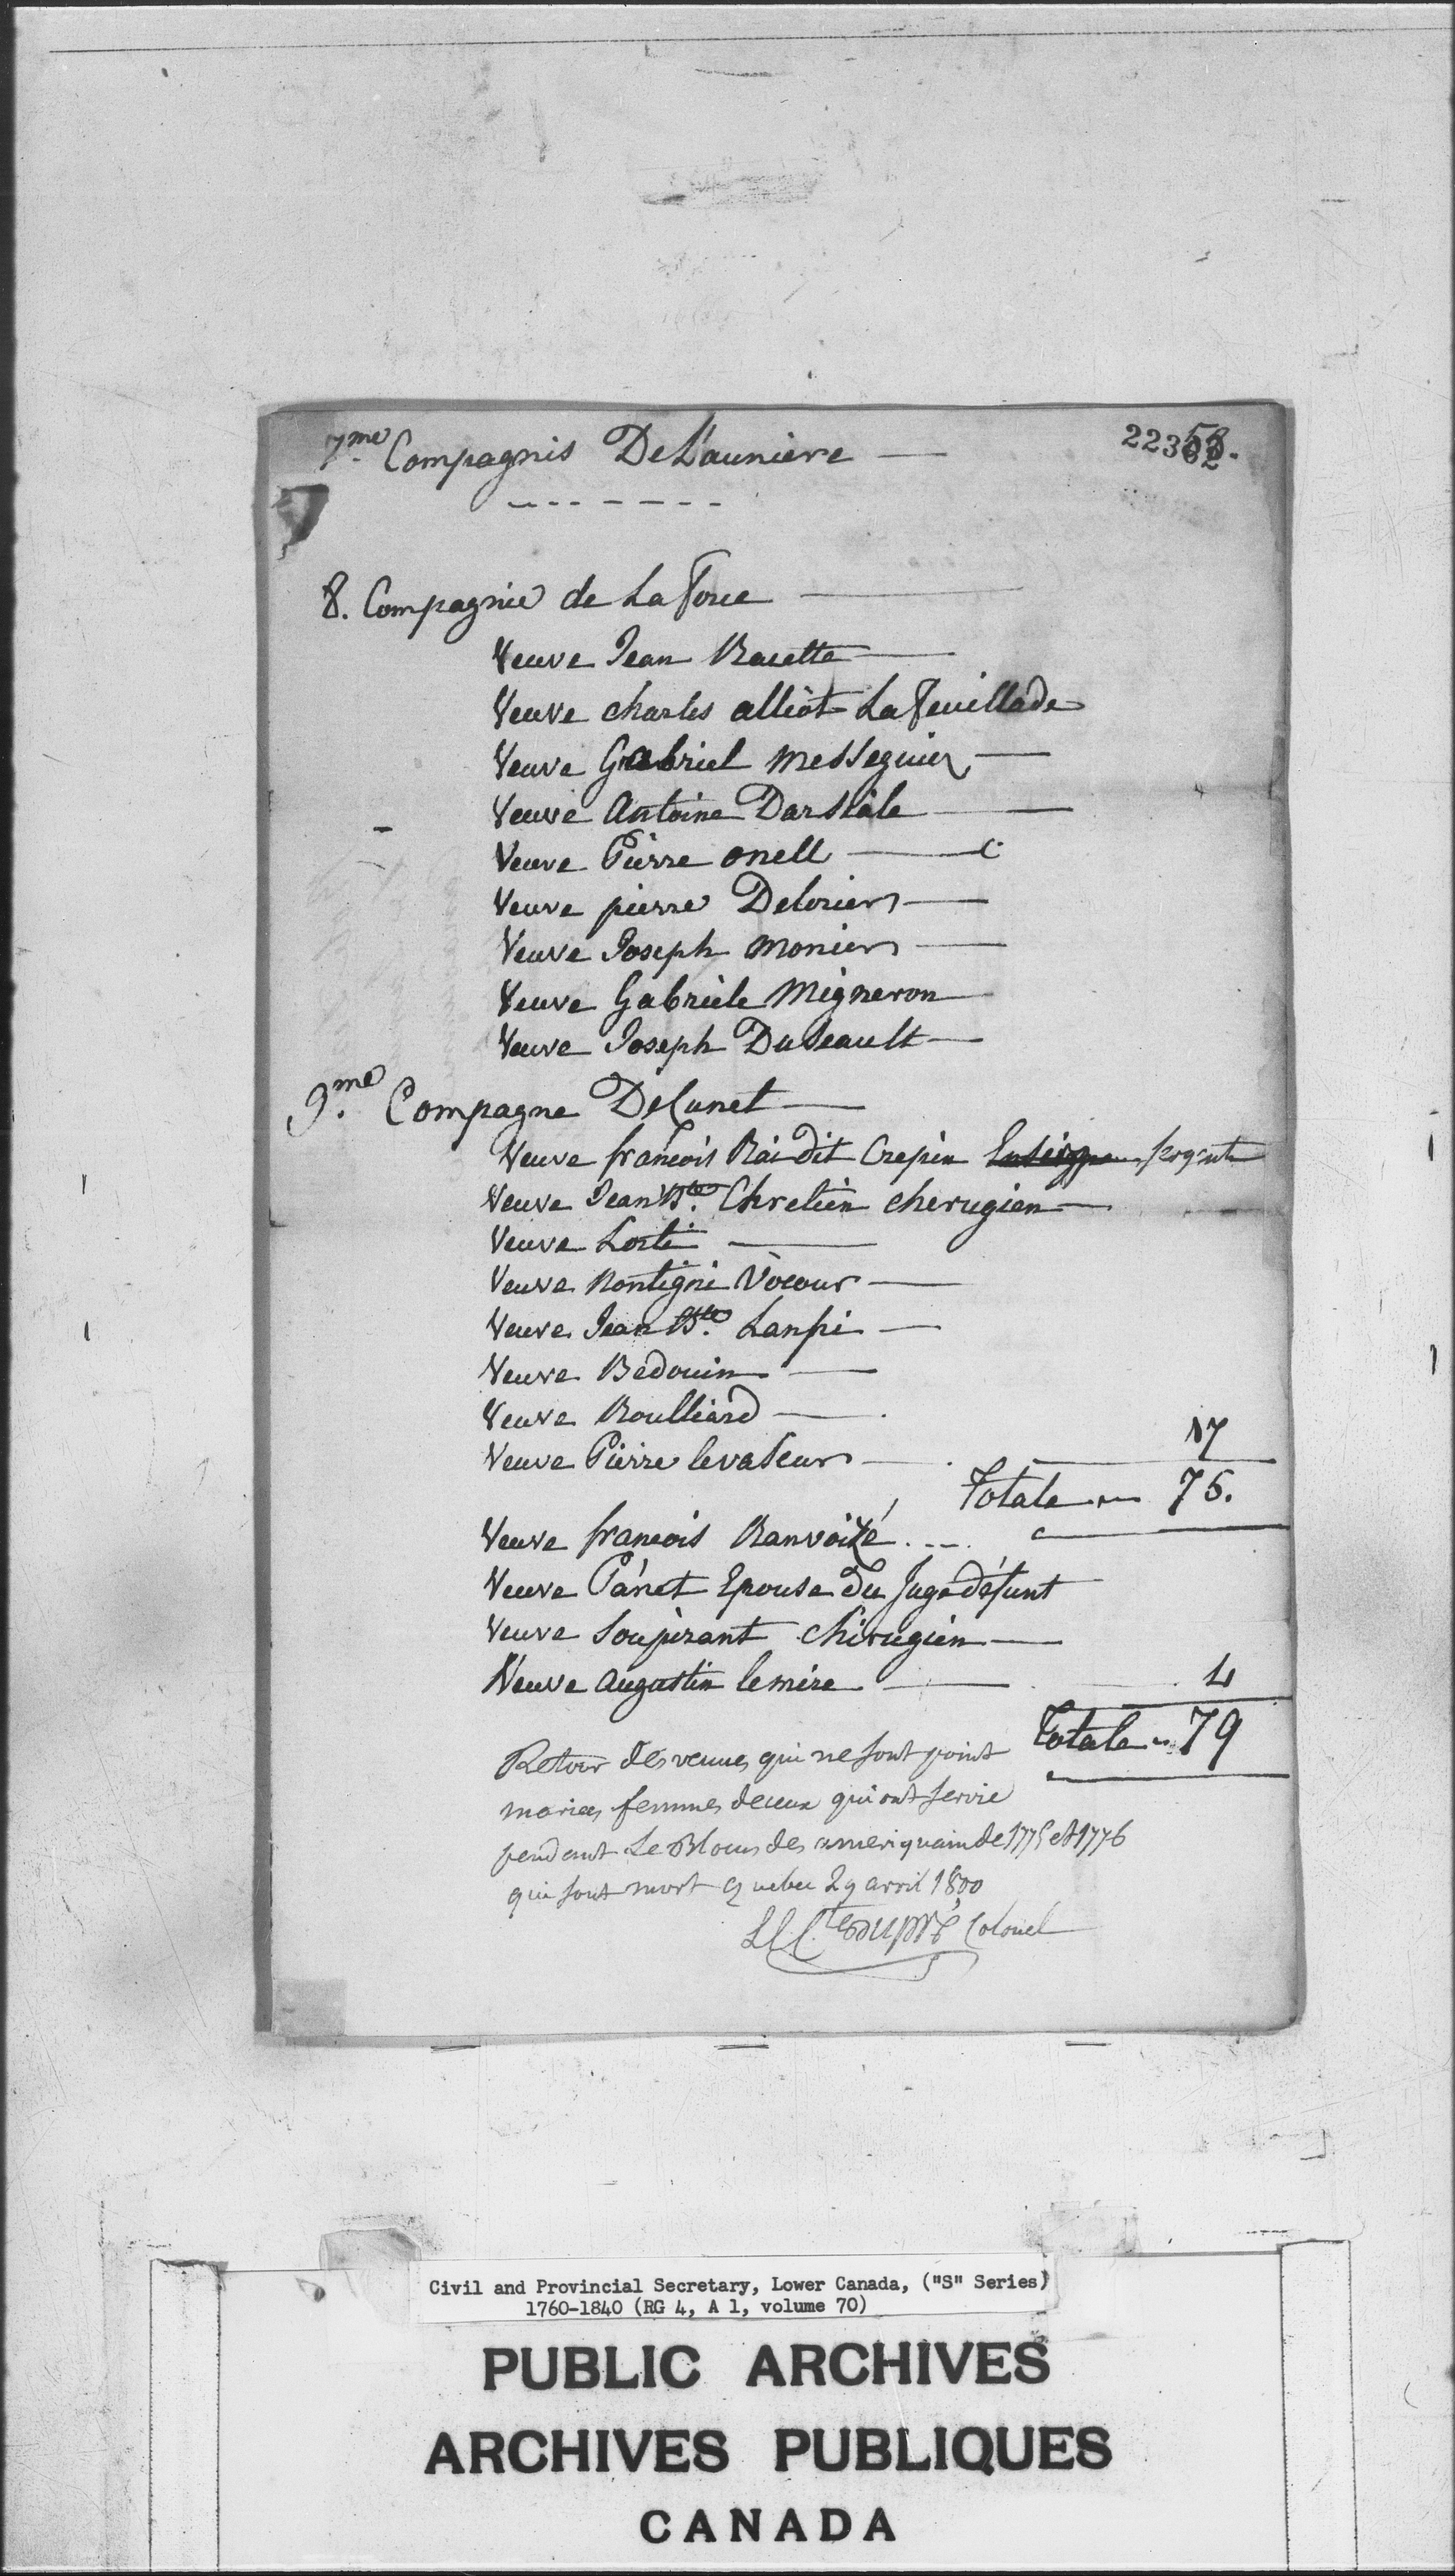 7.me Compagnis DeL'auniere
223
8. Compagnie de La Force
Veuve Jean Racette
Veuve charles alliot La feuillade
Veuve Gabriel Messeguier
Veuve Antoine Darslale
Veuve Pierre onell
Veuve pierre Deloriers
Veuve Joseph Moniers
Veuve Gabriele Migneron
Veuve Joseph Duseault
9.me Compagne DeCunet
Veuve francois Rai dit Crepin Enseigne sergent
Veuve Jean Bte. Chretien cherugien
Veuve Lorti
Veuve Montigni Vocour
Veuve Jean Bte. Lanpi
Veuve Bedouin
Veuve Roulliard
17
Veuve Pierre levaseur
Totale 75.
Veuve francois Ranvoizé
Veuve Panet Epouse Du Juge défunt
Veuve Soupirant Chirugien
Veuve augustin lemire 4
Totale 79
Retour des veuves qui ne sont point
mariees femmes deceux qui ont servie
pendant Le Blocus des ameriquain de 1775 et 1776
qui sont mort quebec 29 avril 1800
Le Cte Dupré Colonel
Civil and Provincial Secretary, Lower Canada, ("S" Series)
1760-1840 (RG 4, A 1, volume 70)
PUBLIC ARCHIVES
ARCHIVES PUBLIQUES
CANADA